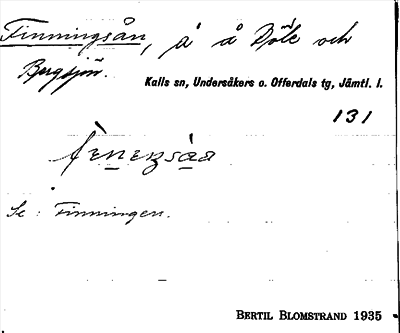 Finningsån, å å Döle och
Bergsjön.
Kalls sn, Undersåkers o. Offerdals tg, Jämtl. l.
131
Se: Finningen.
BERTIL BLOMSTRAND 1935